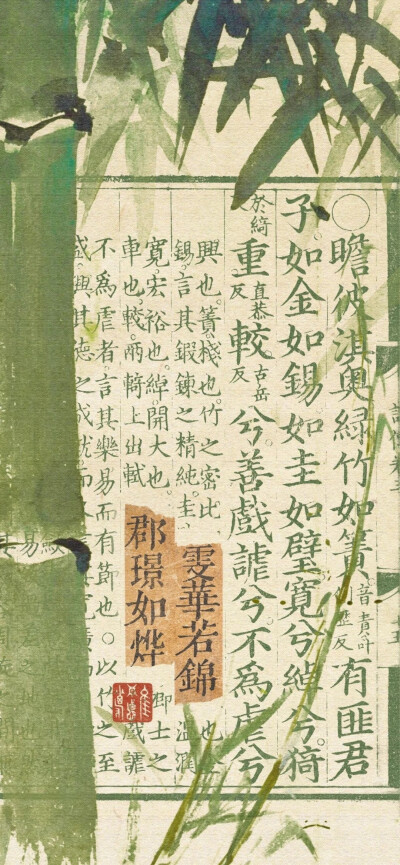 〇瞻彼淇奧綠竹如簀音責叶有匪君
子。如金如錫。如圭如璧。寬兮綽兮。猗
於綺反重直恭反較古岳反兮。善戲謔兮。不為虐兮
興也。簀。棧也。竹之密比
也金
錫。言其鍛鍊之精純。圭
溫潤
雯華若錦
寬。宏裕也。綽。開大也。
卿士之
車也。較。兩輢上出軾
戲謔
郡璟如烨
不為虐者。言其樂易而有節也。〇以竹之至
盛。興其德之成就而